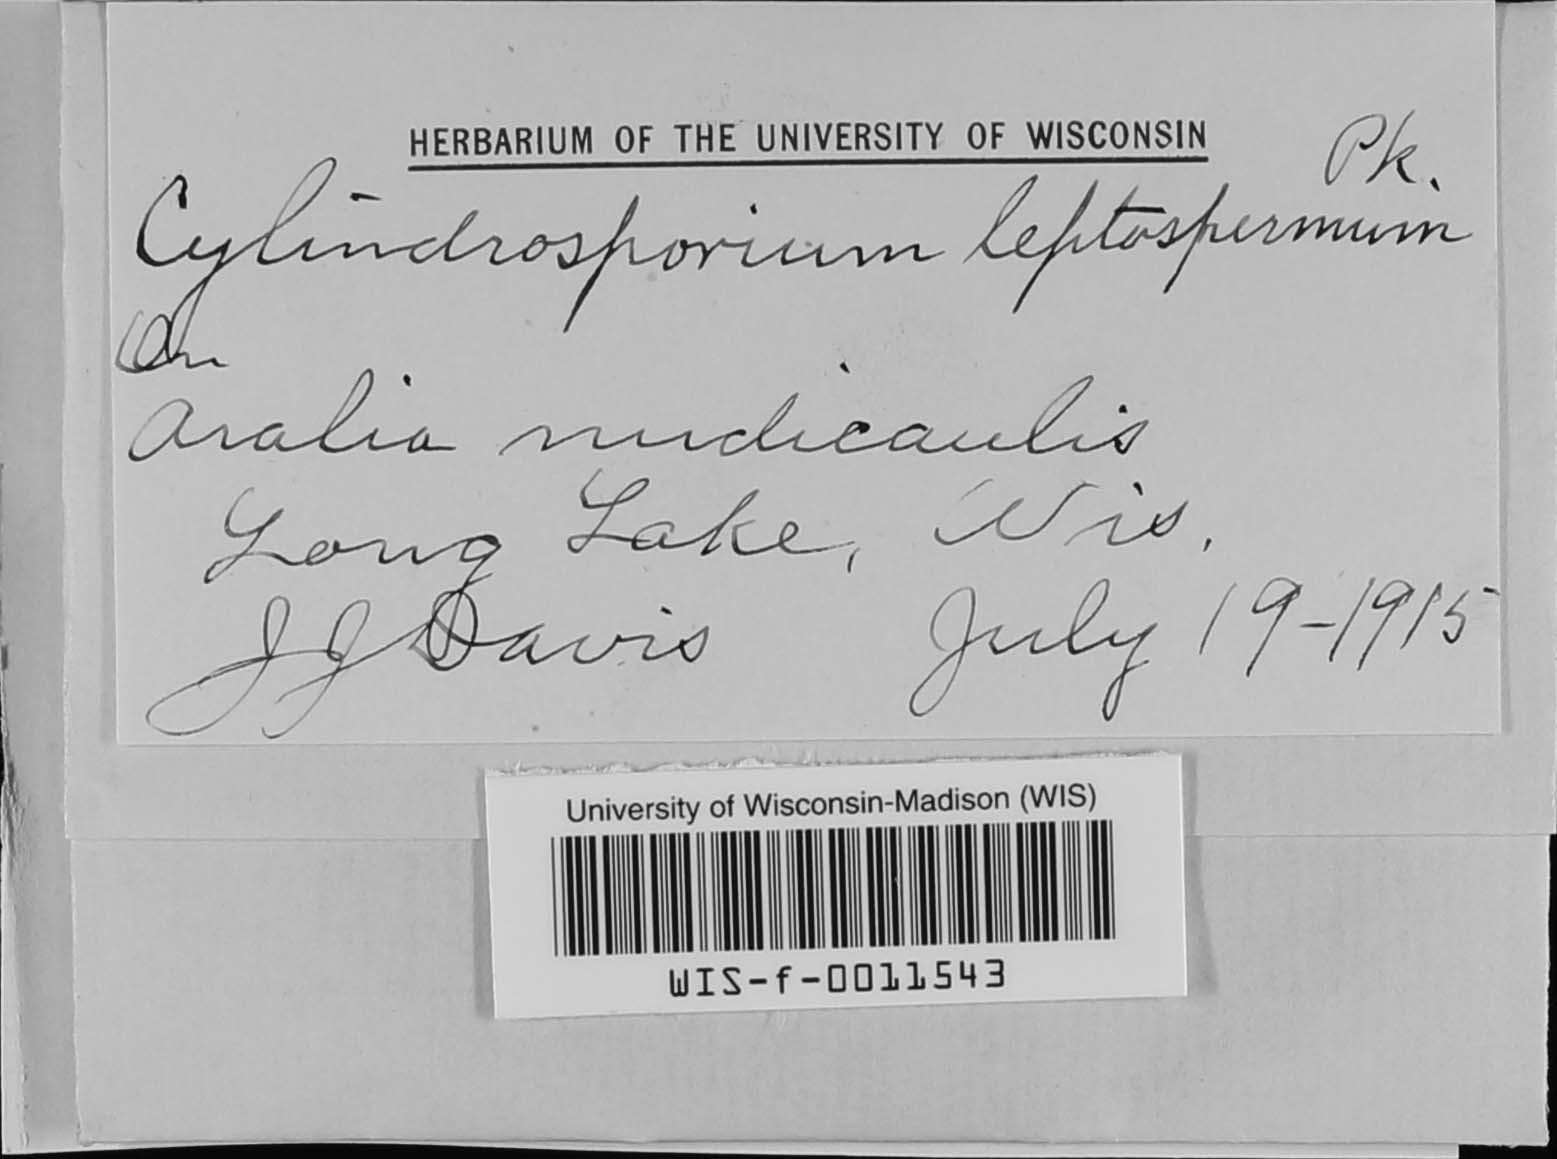 HERBARIUM OF THE UNIVERSITY OF WISCONSIN
Pk.
Cylindrosporium leptospermum
On
Aralia nudicaulis
Long Lake, Wis.
JJDavis July 19-1915
University of Wisconsin-Madison (WIS)
WIS-f-0011543